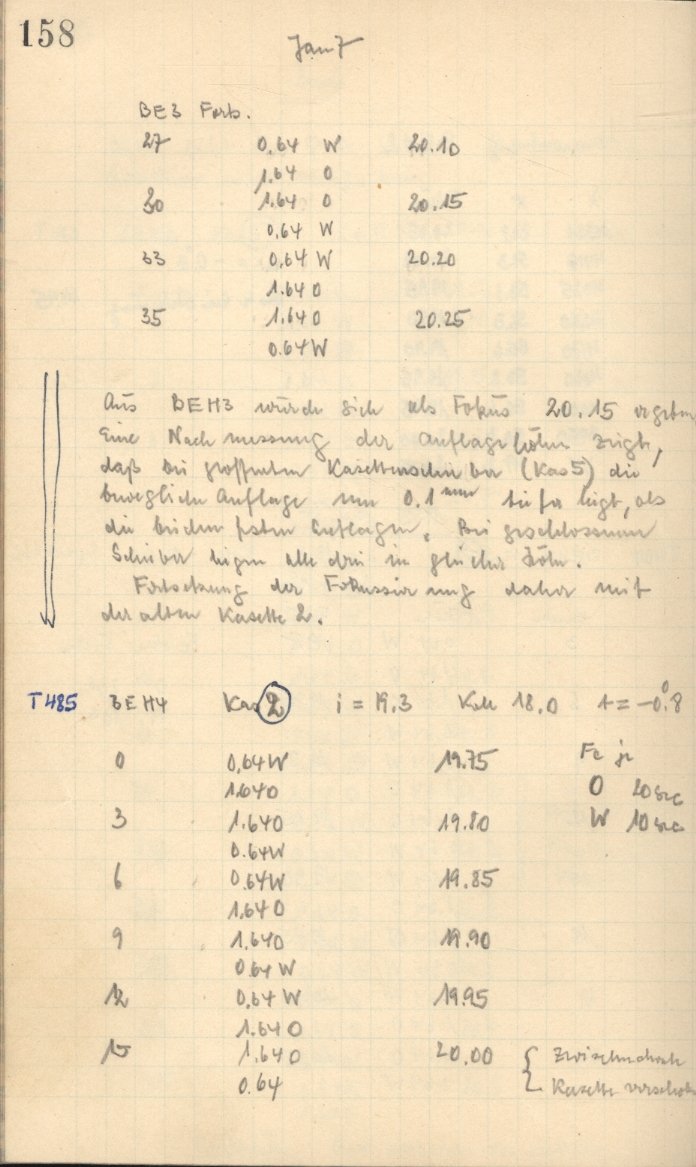 158
Jan 7
BE3 Forts.
27 0.64 W 20.10
1.64 O
30 1.64 O 20.15
0.64 W
33 0.64 W 20.20
1.64 O
35 1.64 O 20.25
0.64 W
Aus BEH3 würde sich als Fokus 20.15 ergeben
Eine Nachmessung der Auflagehöhen zeigt,
daß bei geöffnetem Kasettenschieber (Kas 5) die
bewegliche Auflage um 0.1 mm tiefer liegt, als
die beiden festen Auflagen. Bei geschlossenem
Schieber liegen alle drei in gleicher Höhe.
Fortsetzung der Fokussierung daher mit
der alten Kasette 2.
T485 BEH4 Kas 2 i = 19.3 18.0 t = -0.8°
0 0.64 W 19.75 Fe je
1.64 O O 20 sec
3 1.64 O 19.80 W 10 sec
0.64 W
6 0.64 W 19.85
1.64 O
9 1.64 O 19.90
0.64 W
12 0.64 W 19.95
1.64 O
15 1.64 O 20.00 { Zwischendurch
0.64 Kasette verschoben